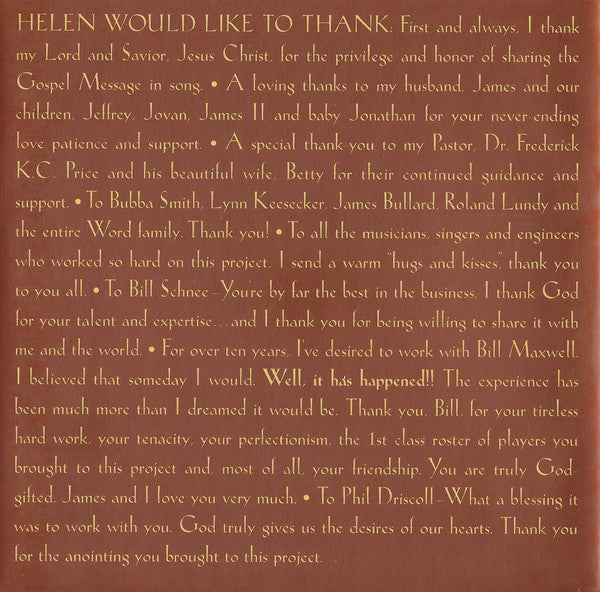 HELEN WOULD LIKE TO THANK: First and always, I thank
my Lord and Savior, Jesus Christ, for the privilege and honor of sharing the
Gospel Message in song. • A loving thanks to my husband, James and our
children, Jeffrey, Jovan, James II and baby Jonathan for your never-ending
love patience and support. • A special thank-you to my Pastor, Dr. Frederick
K.C. Price and his beautiful wife, Betty for their continued guidance and
support. • To Bubba Smith, Lynn Keesecker, James Bullard, Roland Lundy and
the entire Word family. Thank you! • To all the musicians, singers and engineers
who worked so hard on this project, I send a warm "hugs and kisses", thank you
to you all. • To Bill Schnee–You're by far the best in the business. I thank God
for your talent and expertise...and I thank you for being willing to share it with
me and the world. • For over ten years, I've desired to work with Bill Maxwell.
I believed that someday I would. Well, it has happened!! The experience has
been much more than I dreamed it would be. Thank you, Bill, for your tireless
hard work, your tenacity, your perfectionism, the 1st class roster of players you
brought to this project and, most of all, your friendship. You are truly God-
gifted. James and I love you very much. • To Phil Driscoll–What a blessing it
was to work with you. God truly gives us the desires of our hearts. Thank you
for the anointing you brought to this project.